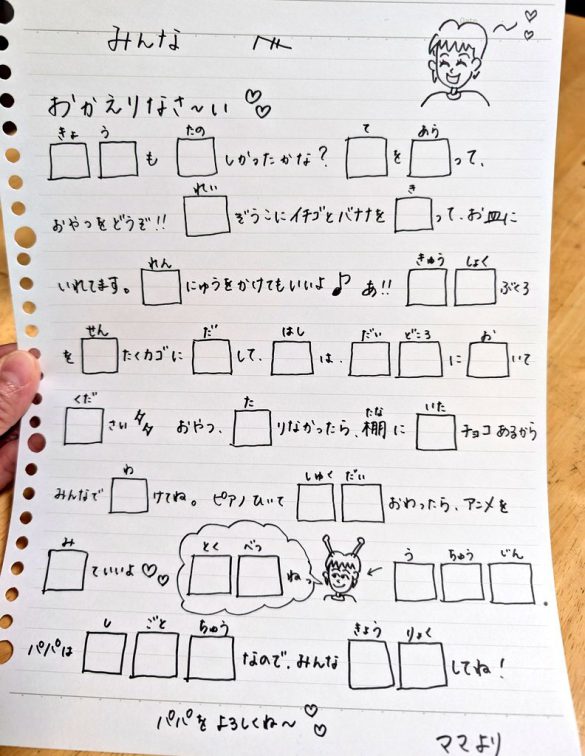 みんな へ
おかえりなさ〜い♡♡
きょ う たの て あら
□□も□しかったかな？ □を□って、
れい き
おやつをどうぞ!! □ぞうこにイチゴとバナナを□って、お皿に
れん きゅう しょく
いれてます。□にゅうをかけてもいいよ♪ あ!! □□ぶくろ
せん だ はし だい どころ お
を□たくカゴに□して、□は、□□に□いて
くだ た たな いた
□さい おやつ、□りなかったら、棚に□チョコあるから
わ しゅく だい
みんなで□けてね。ピアノひいて□□おわったら、アニメを
み とく べつ う ちゅう じん
□ていいよ♡♡ □□ねっ ← □□□.
し ごと ちゅう きょう りょく
パパは□□□なので、みんな□□してね！
パパをよろしくね〜♡♡
ママより